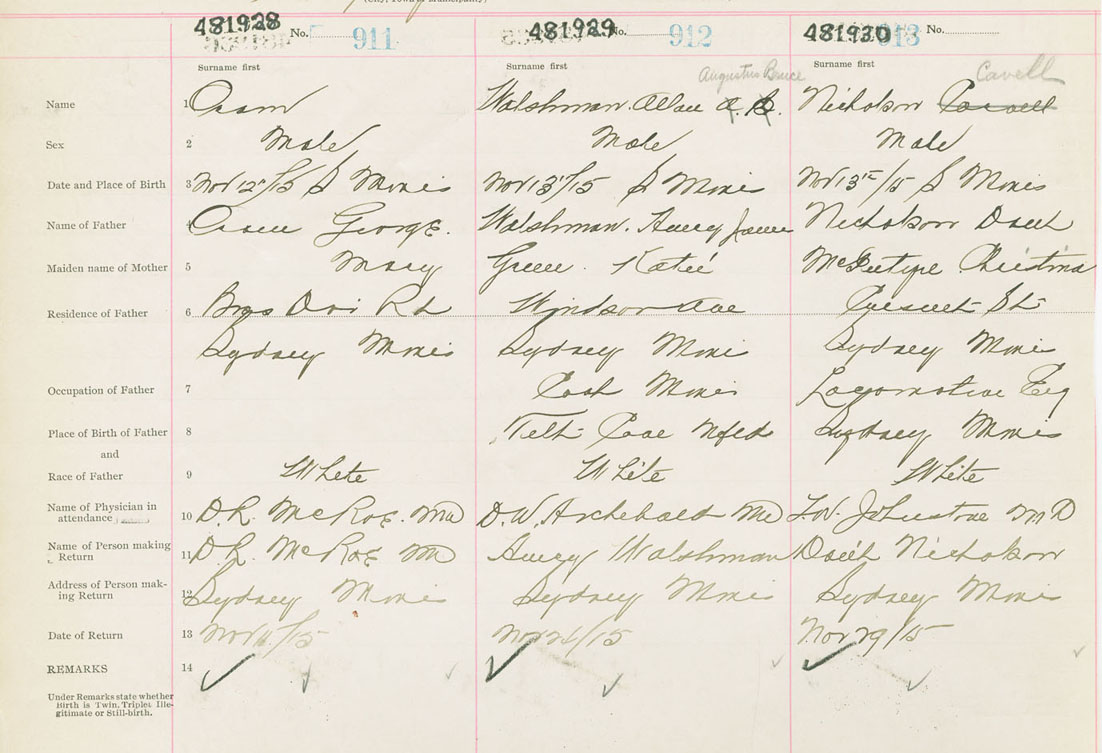 481928 No. 911
481929 No. 912
481930 No. 913
Surname first
Surname first
Surname first
Augustus Bruce
Cavell
Name 1 Walshman Allan A. B. Nicholson Cavell
Sex 2 Male Male Male
Date and Place of Birth 3 Nov 12/15 S Mines Nov 13/15 S Mines Nov 13/15 S Mines
Name of Father 4 George. Walshman. James Nicholson
Maiden name of Mother 5 Mary Green. Katie Christina
Residence of Father 6 Bras Dor Rd Windsor Ave St
Sydney Mines Sydney Mines Sydney Mines
Occupation of Father 7 Mines Locomotive Eng
Place of Birth of Father 8 Tilt Cove Nfld Sydney Mines
and
Race of Father 9 White White White
Name of Physician in
attendance 10 D. R. McRae. MD D. W. Archibald MD Johnstone M D
Name of Person making
Return 11 D. R. McRae MD Walshman Nicholson
Address of Person mak-
ing Return 12 Sydney Mines Sydney Mines Sydney Mines
Date of Return 13 Nov /15 Nov 24/15 Nov 29/15
REMARKS 14
Under Remarks state whether
Birth is Twin, Triplet Ille-
gitimate or Still-birth.